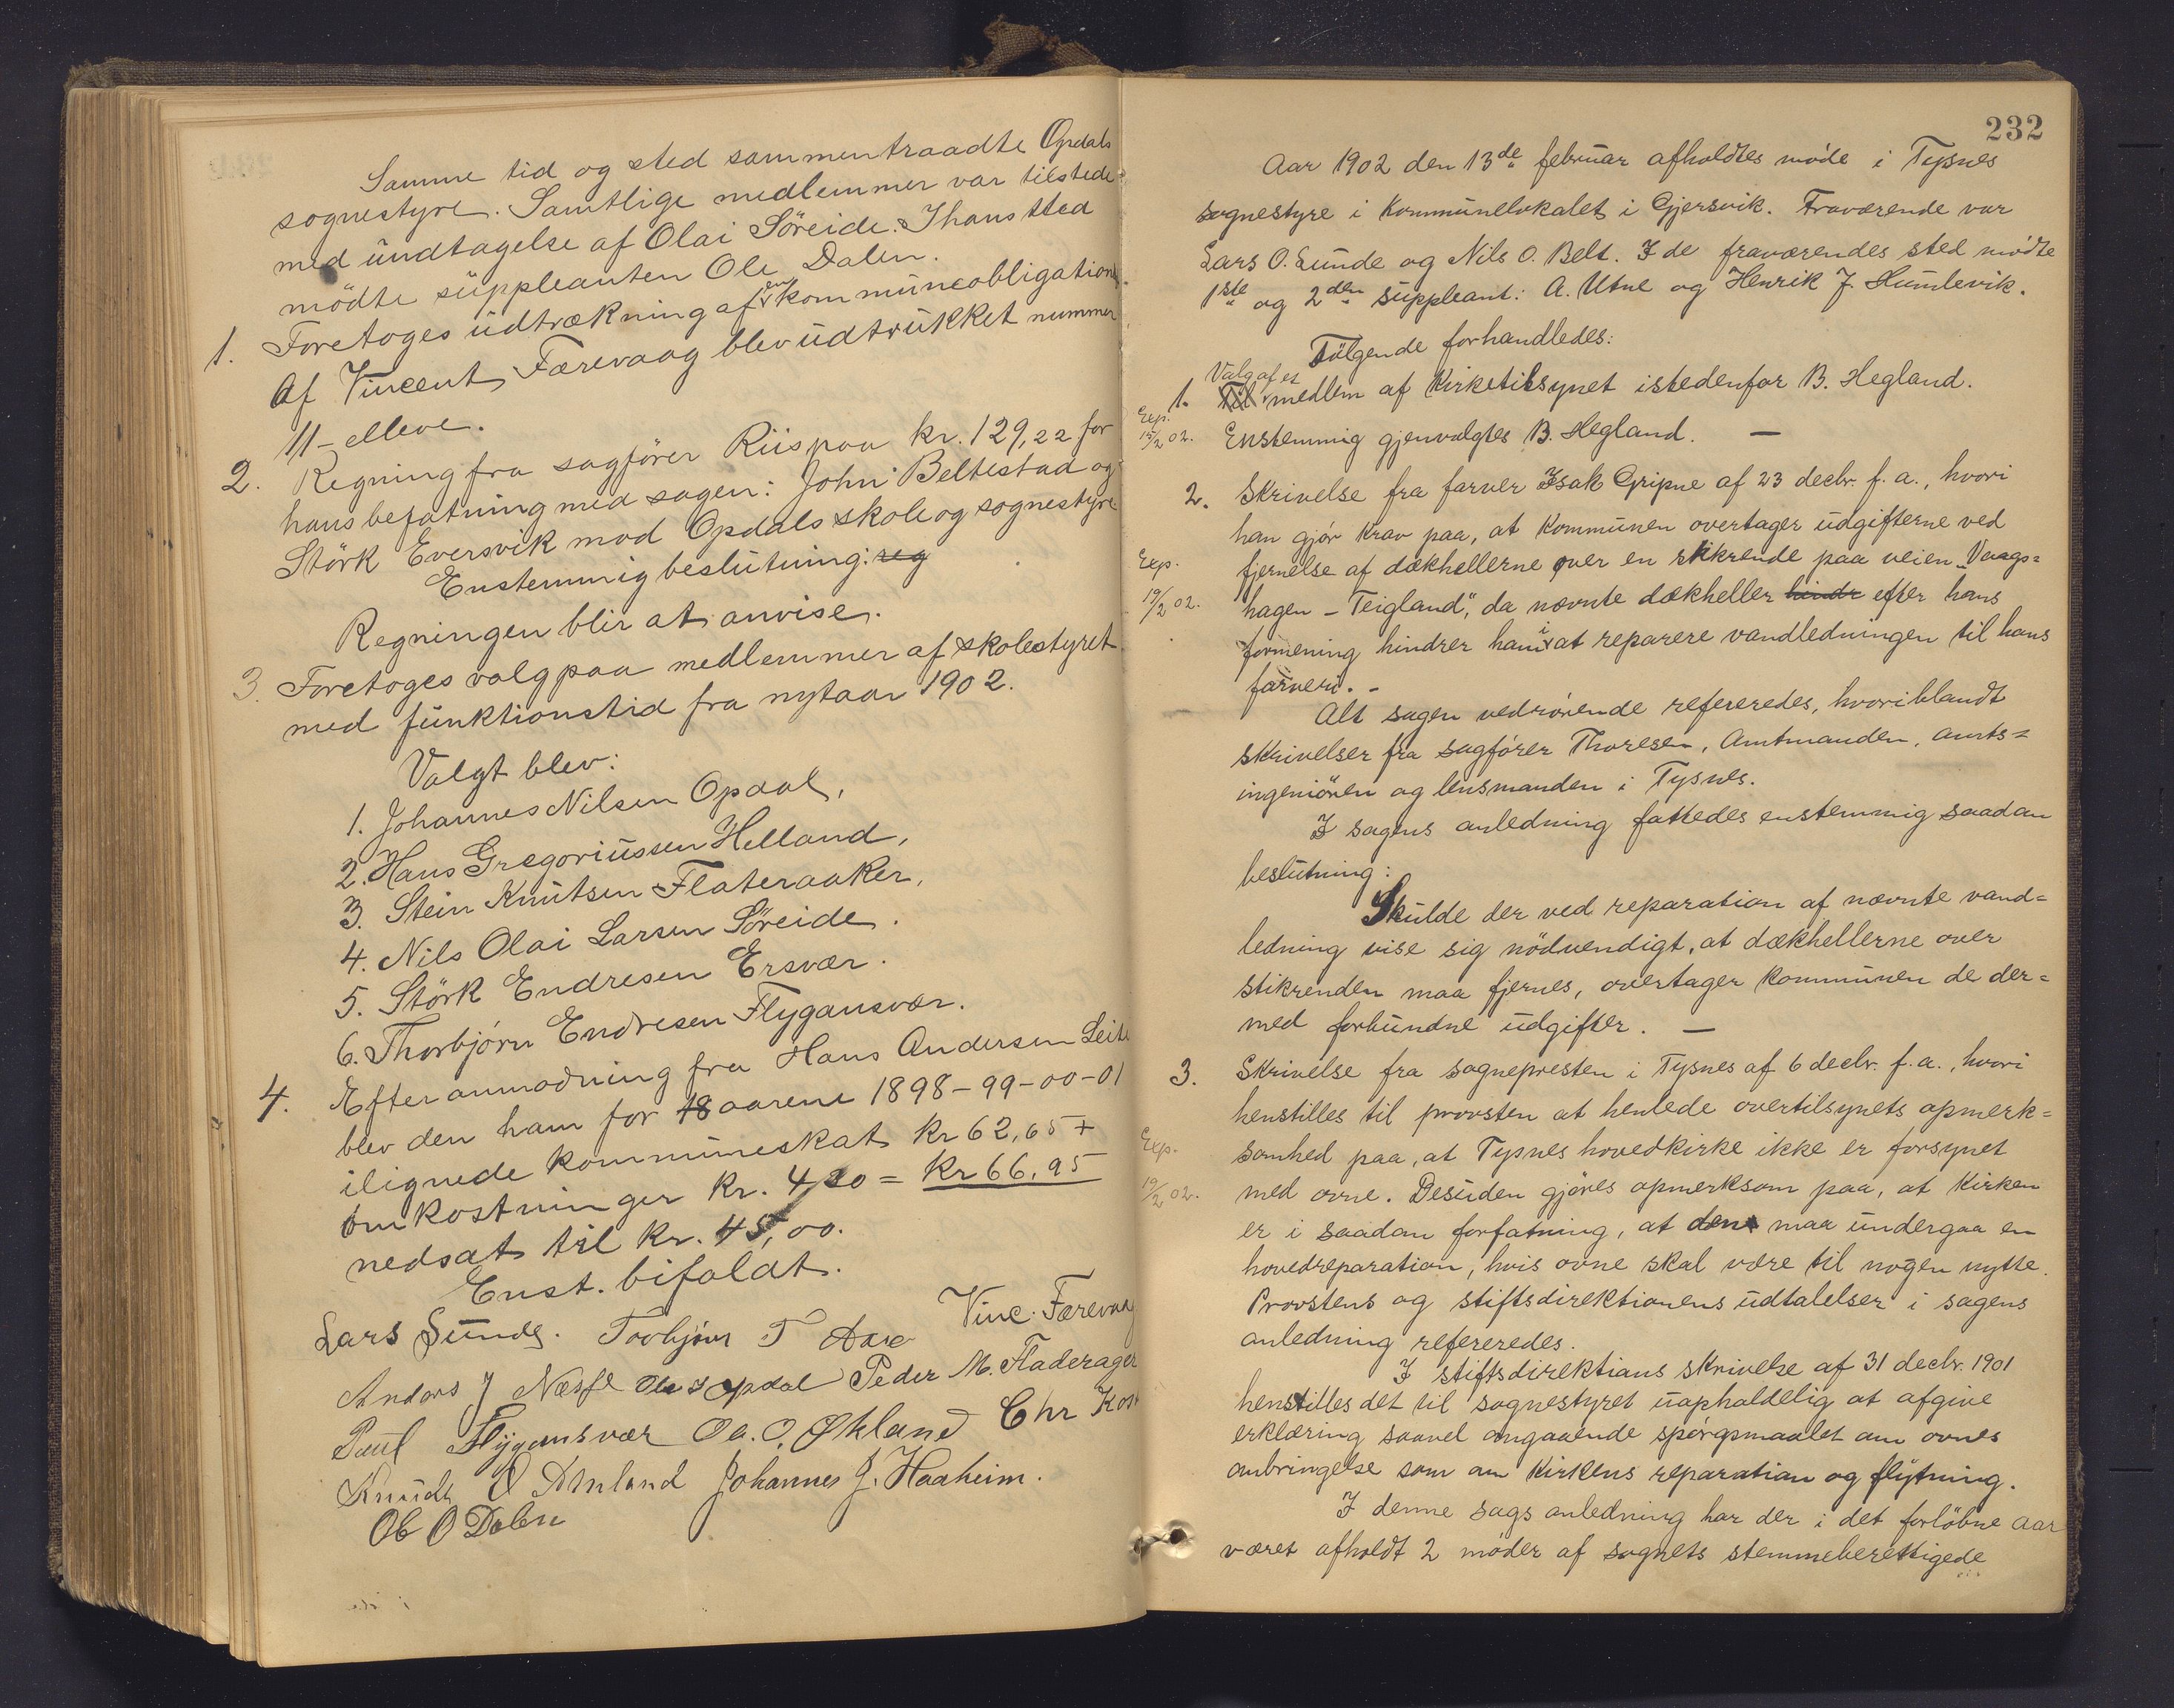 Samme tid og sted sammentraadte Opdals
sognestyre. Samtlige medlemmer var tilstede
med undtagelse af Olai Söreide. I hans sted
mödte suppleanten Ole Dalen.
1. Foretoges udtrækning af en kommuneobligation.
Af Vincent Færevaag blev udtrukket nummer
11 - elleve.
2. Regning fra sagförer Riis paa kr. 129,22 for
hans befatning med sagen: John Beltestad og
Störk Eversvik mod Opdals skole og sognestyre
Enstemmig beslutning: reg
Regningen blir at anvise.
3. Foretoges valg paa medlemmer af skolestyret
med funktionstid fra nytaar 1902.
Valgt blev:
1. Johannes Nilsen Opdal,
2. Hans Gregoriussen Helland,
3. Stein Knutsen Flateraaker,
4. Nils Olai Larsen Söreide.
5. Störk Endresen Ersvær.
6. Thorbjörn Endresen Flygansvær.
4. Efter anmodning fra Hans Andersen Leite
blev den ham for 18 aarene 1898-99-00-01
ilignede kommuneskat kr 62,65 +
omkostninger kr. 4,30 = kr 66,95
nedsat til kr. 45,00.
Enst. bifaldt.
Lars Sunde. Torbjörn T Vinc. Færevaag
Anders J Næsse Ole J Opdal Peder M. Fladerager
Paul Flygansvær Ol. O. Økland Chr
Knudt O Amland Johannes J. Haaheim.
Ole O Dalen
232
Aar 1902 den 13de februar afholdtes möde i Tysnes
sognestyre i kommunelokalet i Gjersvik. Fraværende var
Lars O. Sunde og Nils O. Belt. I de fraværendes sted mödte
1ste og 2den suppleant: A. Utne og Henrik J. Humlevik.
Fölgende forhandledes:
1. Til Valg af et medlem af kirketilsynet istedenfor B. Hegland.
Exp. 15/2 02. Enstemmig gjenvalgtes B. Hegland. —
2. Skrivelse fra farver Isak Gripne af 23 decbr. f. a., hvori
han gjör krav paa, at kommunen overtager udgifterne ved
Exp. fjernelse af dækhellerne over en stikrende paa veien „Vaags=
19/2 02. hagen - Teigland", da nævnte dækheller hindr efter hans
formening hindrer ham i at reparere vandledningen til hans
farveri. -
Alt sagen vedrörende refereredes, hvoriblandt
skrivelser fra sagförer Thoresen, Amtmanden, amts=
ingeniören og lensmanden i Tysnes.
I sagens anledning fattedes enstemmig saadan
beslutning:
Skulde der ved reparation af nævnte vand=
ledning vise sig nödvendigt, at dækhellerne over
stikrenden maa fjernes, overtager kommunen de der=
med forbundne udgifter. —
3. Skrivelse fra sognepresten i Tysnes af 6 decbr. f. a., hvori
henstilles til provsten at henlede overtilsynets opmerk=
Exp. somhed paa, at Tysnes hovedkirke ikke er forsynet
19/2 02. med ovne. Desuden gjöres opmerksom paa, at kirken
er i saadan forfatning, at den maa undergaa en
hovedreparation, hvis ovne skal være til nogen nytte.
Provstens og stiftsdirektionens udtalelser i sagens
anledning refereredes.
I stiftsdirektions skrivelse af 31 decbr. 1901
henstilles det til sognestyret uopholdelig at afgive
erklæring saavel angaaende spörgsmaalet om ovnes
anbringelse som om kirkens reparation og flytning.
I denne sags anledning har der i det forlöbne aar
været afholdt 2 möder af sognets stemmeberettigede